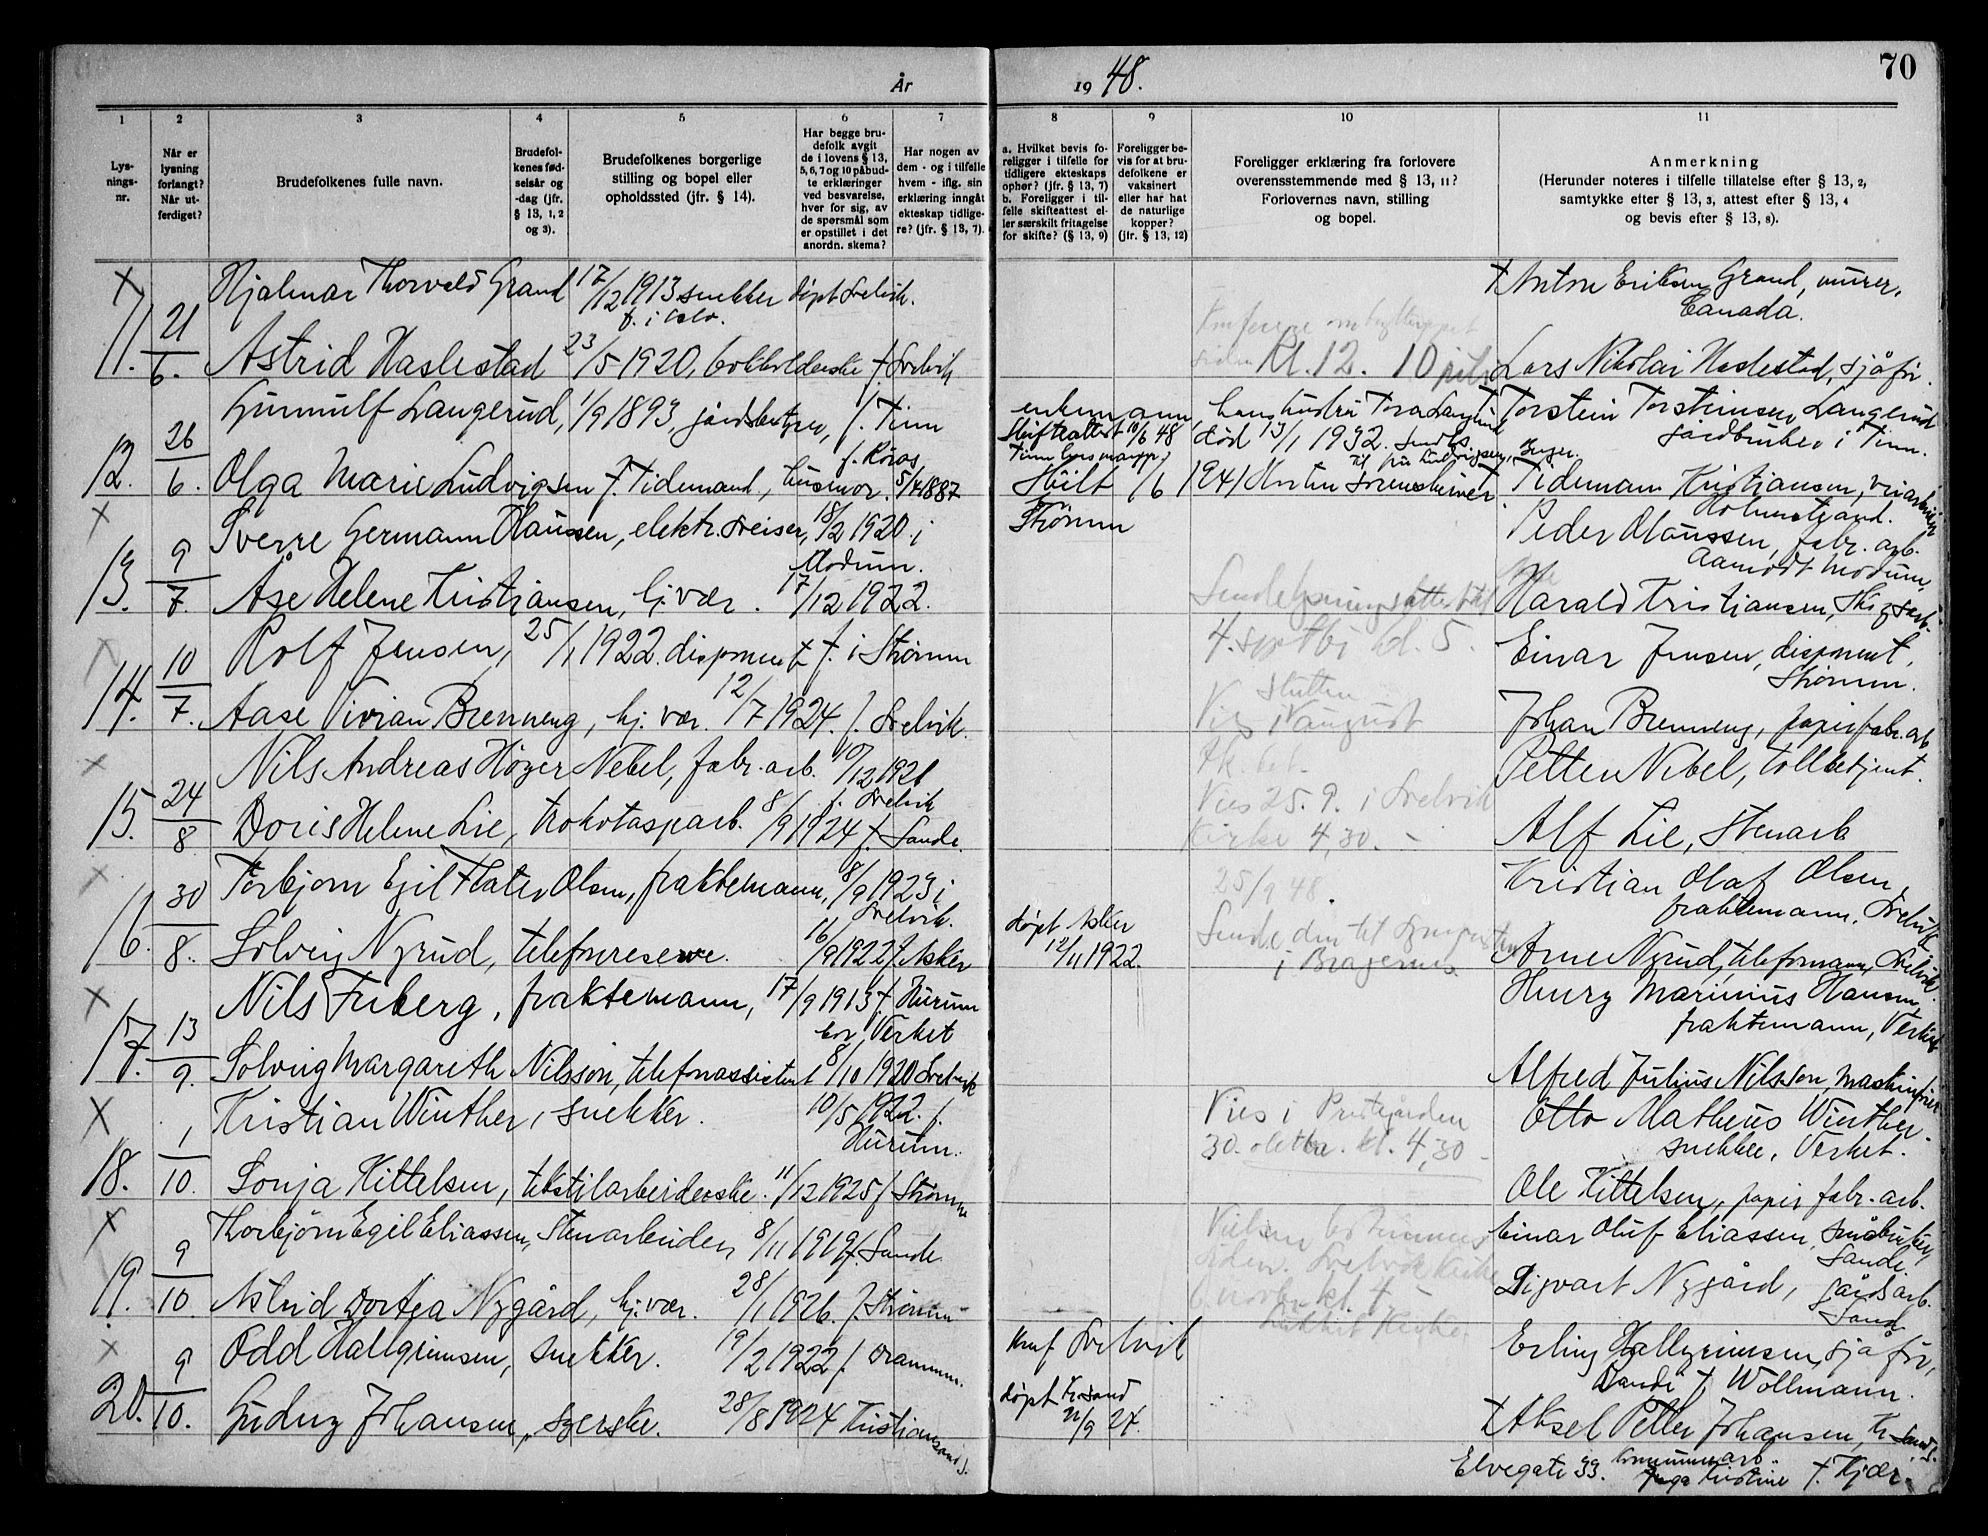 År
19 48.
70
1 2 3 4 5 6 7 8 9 10 11
Lys-
nings-
nr.
Når er
lysning
forlangt?
Når ut-
ferdiget?
Brudefolkenes fulle navn.
Brudefol-
kenes fød-
selsår og
-dag (jfr.
§ 13, 1, 2
og 3).
Brudefolkenes borgerlige
stilling og bopel eller
opholdssted (jfr. § 14).
Har begge bru-
defolk avgit
de i lovens § 13,
5, 6, 7 og 10 påbud-
te erklæringer
ved besvarelse,
hver for sig, av
de spørsmål som
er opstillet i det
anordn. skema?
Har nogen av
dem - og i tilfelle
hvem - iflg. sin
erklæring inngått
ekteskap tidlige-
re? (jfr. § 13, 7).
a. Hvilket bevis fo-
religger i tilfelle for
tidligere ekteskaps
ophør? (jfr. § 13, 7)
b. Foreligger i til-
felle skifteattest el-
ler særskilt fritagelse
for skifte? (§ 13, 9)
Foreligger be-
vis for at bru-
defolkene er
vaksinert
eller har hat
de naturlige
kopper?
(jfr. § 13, 12)
Foreligger erklæring fra forlovere
overensstemmende med § 13, 11?
Forlovernes navn, stilling
og bopel.
Anmerkning
(Herunder noteres i tilfelle tillatelse efter § 13, 2,
samtykke efter § 13, 3, attest efter § 13, 4
og bevis efter § 13, 8).
x Hjalmar Thorvald Grand 17/12 1913 snekker døpt Svelvik. † Anton Eriksen Grand, murer,
f. i Oslo. Canada.
11. 21/6. Astrid Haslestad 23/5 1920, bokholderske f. Svelvik Kl. 12. 10 Lars Nikolai Haslestad, sjåfør.
Gunnulf Langerud, 1/9 1893, gårdsbestyrer, f. Tinn enkemann, hans hustru Tora Langerud Torstein Torsteinsen Langerud
Skifteattest 10/6 48 død 13/1 1932. gårdbruker i Tinn.
f. Røros
12. 26/6. Olga Marie Ludvigsen f. Tidemand, husmor. 5/4 1887 Skilt 1/6 1941 Tidemann Kristiansen,
Strømm Holmestrand.
x Sverre Germann Olaussen, elektr. sveiser, 18/2 1920 i Peder Olaussen, fabr. arb.
Modum. Aamodt Modum,
13. 9/7. Åse Helene Kristiansen, hj. vær. 17/12 1922. Sende lysningsattest til Harald Kristiansen,
x Rolf Jensen, 25/1 1922. disponent f. i Strømm 4. kl. 5. Einar Jensen, disponent,
Strømm.
14. 10/7. Aase Vivian Brenneng, hj. vær. 12/7 1924. f. Svelvik. Vies i august Johan Brenneng, papirfabr. arb
x Nils Andreas Høyer Nebel, fabr. arb. 10/12 1921 Petter Nebel, tollbetjent.
f. Svelvik
15. 24/8 Doris Helene Lie, trikotasjearb. 8/9 1924 f. Sande. Vies 25. 9. i Svelvik
Kirke 4,30. Alf Lie, Stenarb
x Torbjørn Egil Flater Olsen, fraktemann, 8/9 1923 i 25/9 48. Kristian Olaf Olsen,
Svelvik. fraktemann. Svelvik
16. 30/8. Solveig Nyrud, telefonreserve. 16/9 1922 f. Asker døpt Asker 12/11 1922. Sende den til
i Bragernes Arne Nyrud, telefonmann, Svelvik.
x Nils Friberg, fraktemann, 17/9 1913 f. Hurum Henry Marinius Hansen
bor Verket fraktemann, Verket
17. 13/9. Solveig Margareth Nilsson, telefonassistent 8/10 1920 Svelvik Alfred Julius Nilsson, maskinfører
x Kristian Winther, snekker. 10/5 1922. f. Vies i Prestegården Otto Matheus Winther.
Hurum. 30. kl. 4,30 snekker, Verket.
18. 1/10. Sonja Kittelsen, tekstilarbeiderske. 11/12 1925 f. Strømm Ole Kittelsen, papir fabr. arb.
x Thorbjørn Egil Eliassen, Stenarbeider, 8/11 1919 f. Sande Einar Oluf Eliassen, småbruker,
Sande
19. 9/10. Astrid Dortea Nygård, hj. vær. 28/1 1926. f. Strømm Svelvik Kirke Sigvart Nygård, gårdsarb.
Sande
x Odd Hallgrimsen, snekker. 19/2 1922 f. Drammen. Konf Svelvik Erling Hallgrimsen, sjåfør,
Sande f. Wollmann.
20. 9/10. Gudny Johansen, syerske. 28/8 1924 Kristiansand S. døpt Kr.sand 21/9 24. † Aksel Petter Johansen, Kr. Sand S.
Elvegate 33. kommunearb.
Inga Kristine f. Kjær.